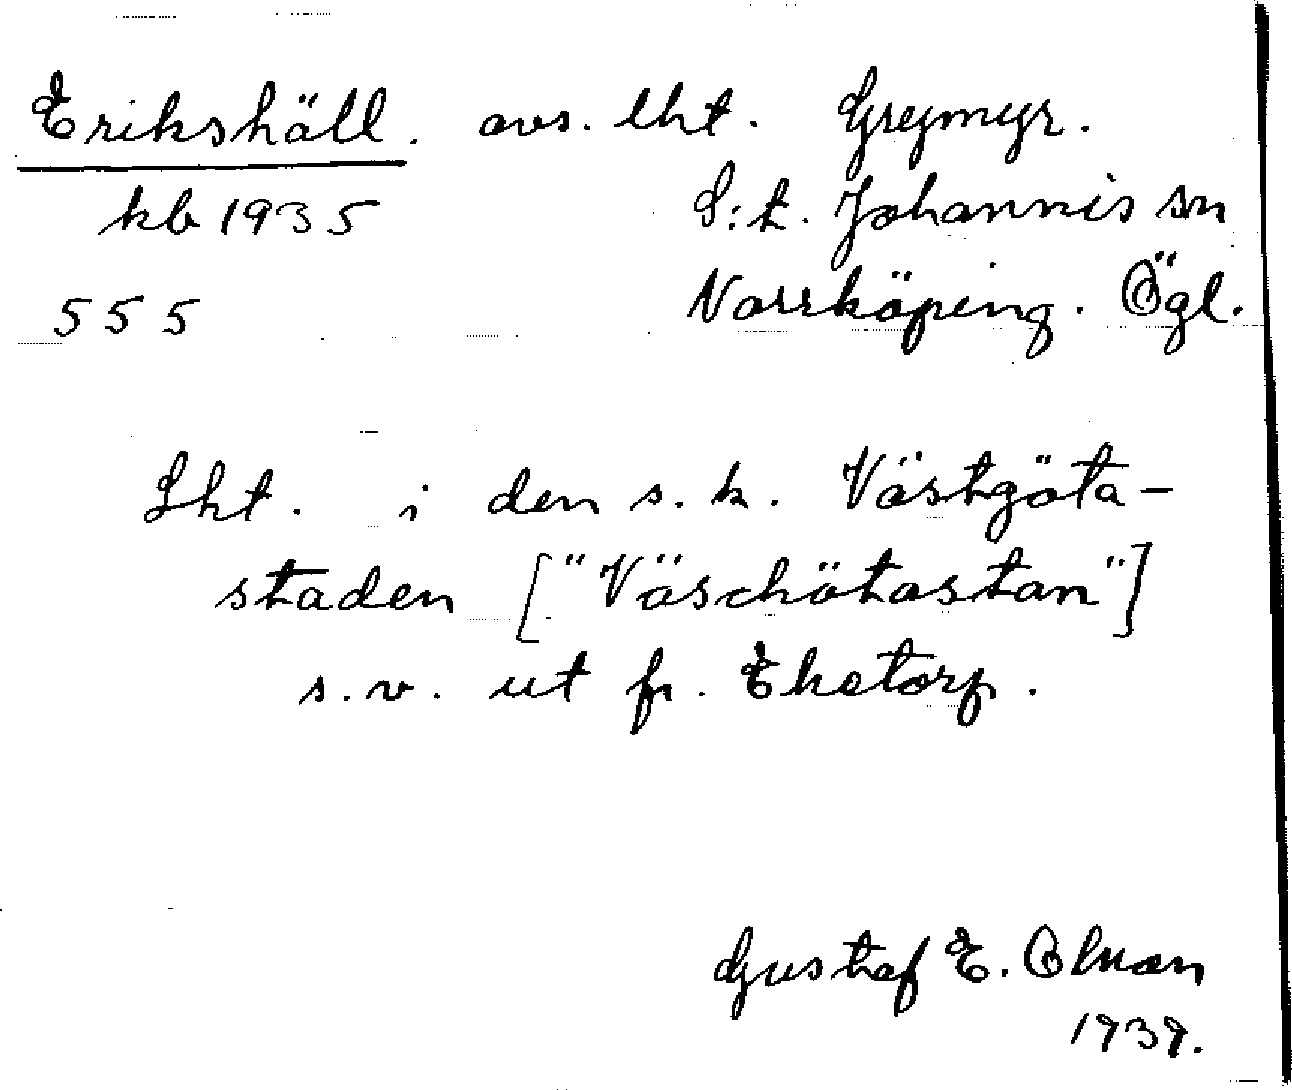 Erikshäll. avs. lht. Greymyr.
kb 1935 S:t. Johannis sn
555 Norrköping. Ögl.
Lht. i den s.k. Västgöta-
staden ["Väschötastan"]
s.v. ut fr. Eketorp.
Gustaf E.
1939.